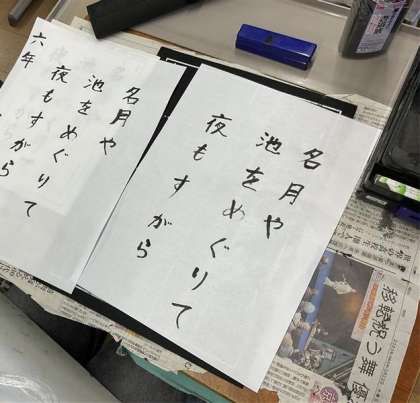 名月や
池をめぐりて
夜もすがら
名月や
池をめぐりて
夜もすがら
六年
移転祝う舞